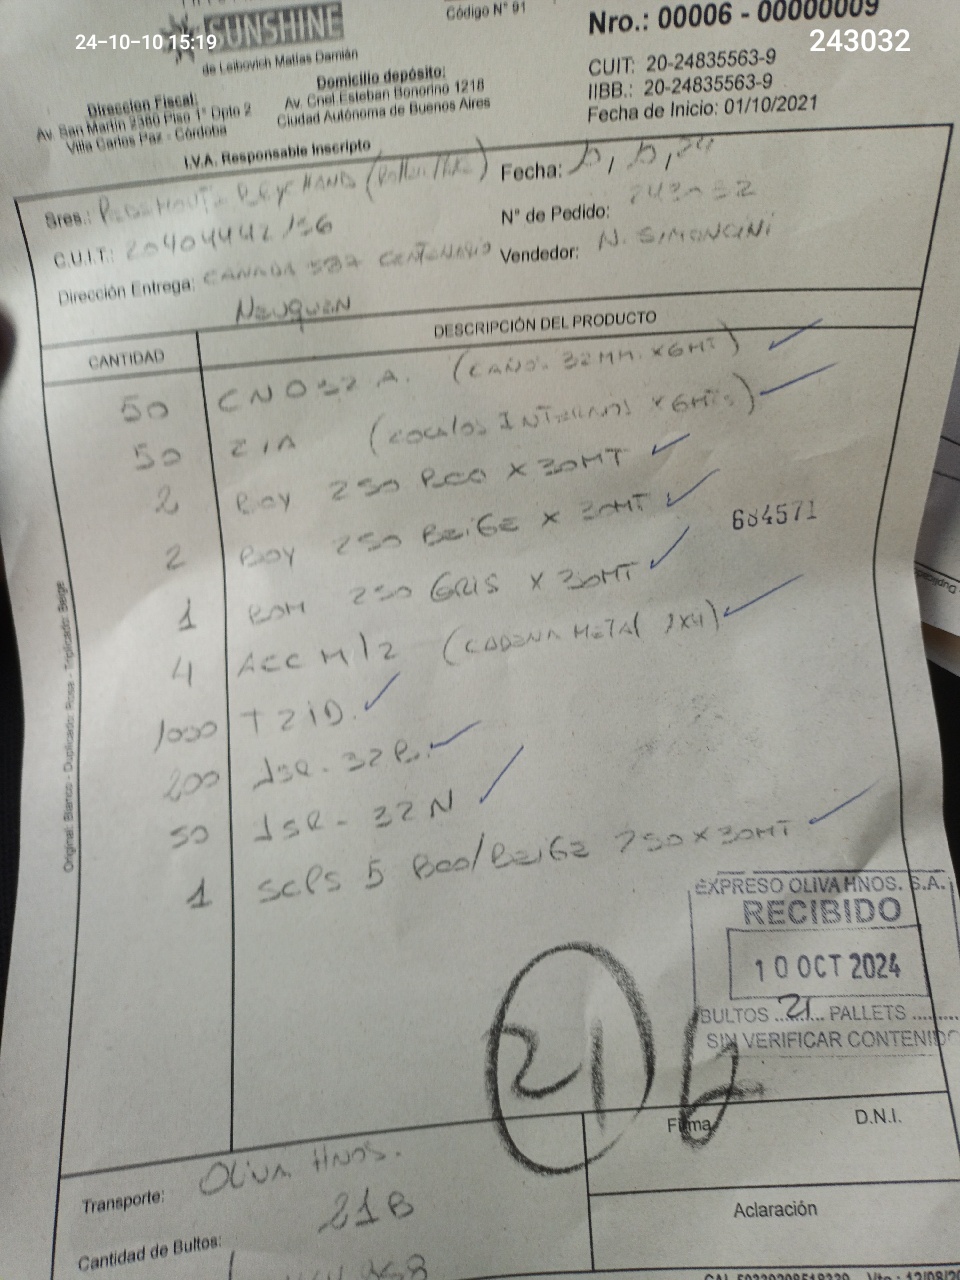 24-10-10 15:19
243032
SUNSHINE
de Leibovich Matías Damián
Código N° 91
Nro.: 00006 - 00000009
CUIT: 20-24835563-9
IIBB.: 20-24835563-9
Fecha de Inicio: 01/10/2021
Direccion Fiscal:
Av. San Martín 2360 Piso 1° Dpto 2
Villa Carlos Paz - Córdoba
Domicilio depósito:
Av. Cnel.Esteban Bonorino 1218
Ciudad Autónoma de Buenos Aires
I.V.A. Responsable Inscripto
Sres.:
Fecha:
C.U.I.T.: 20404442156
N° de Pedido: 243032
Dirección Entrega: CANADA 587 CENTENARIO
Vendedor: N. SIMONCINI
NEUQUEN
CANTIDAD DESCRIPCIÓN DEL PRODUCTO
50 CNO32 A. (CAÑO. 32MM. X6MT)
50 ZIA (ZOCALOS INTERNOS X 6MTS)
2 BOY 250 BCO X 30MT
2 BOY 250 BEIGE X 30MT
684571
1 BOM 250 GRIS X 30MT
4 ACC M12 (CADENA METAL)
1000 TZID.
200 JSR-32B.
50 JSR-32N
1 SCPS 5 BCO/BEIGE 250X30MT
Original: Blanco - Duplicado: Rosa - Triplicado: Beige
EXPRESO OLIVA HNOS. S.A.
RECIBIDO
10 OCT 2024
BULTOS ...21... PALLETS .........
SIN VERIFICAR CONTENIDO
21
Firma
D.N.I.
Transporte: OLIVA HNOS.
Aclaración
Cantidad de Bultos: 21B